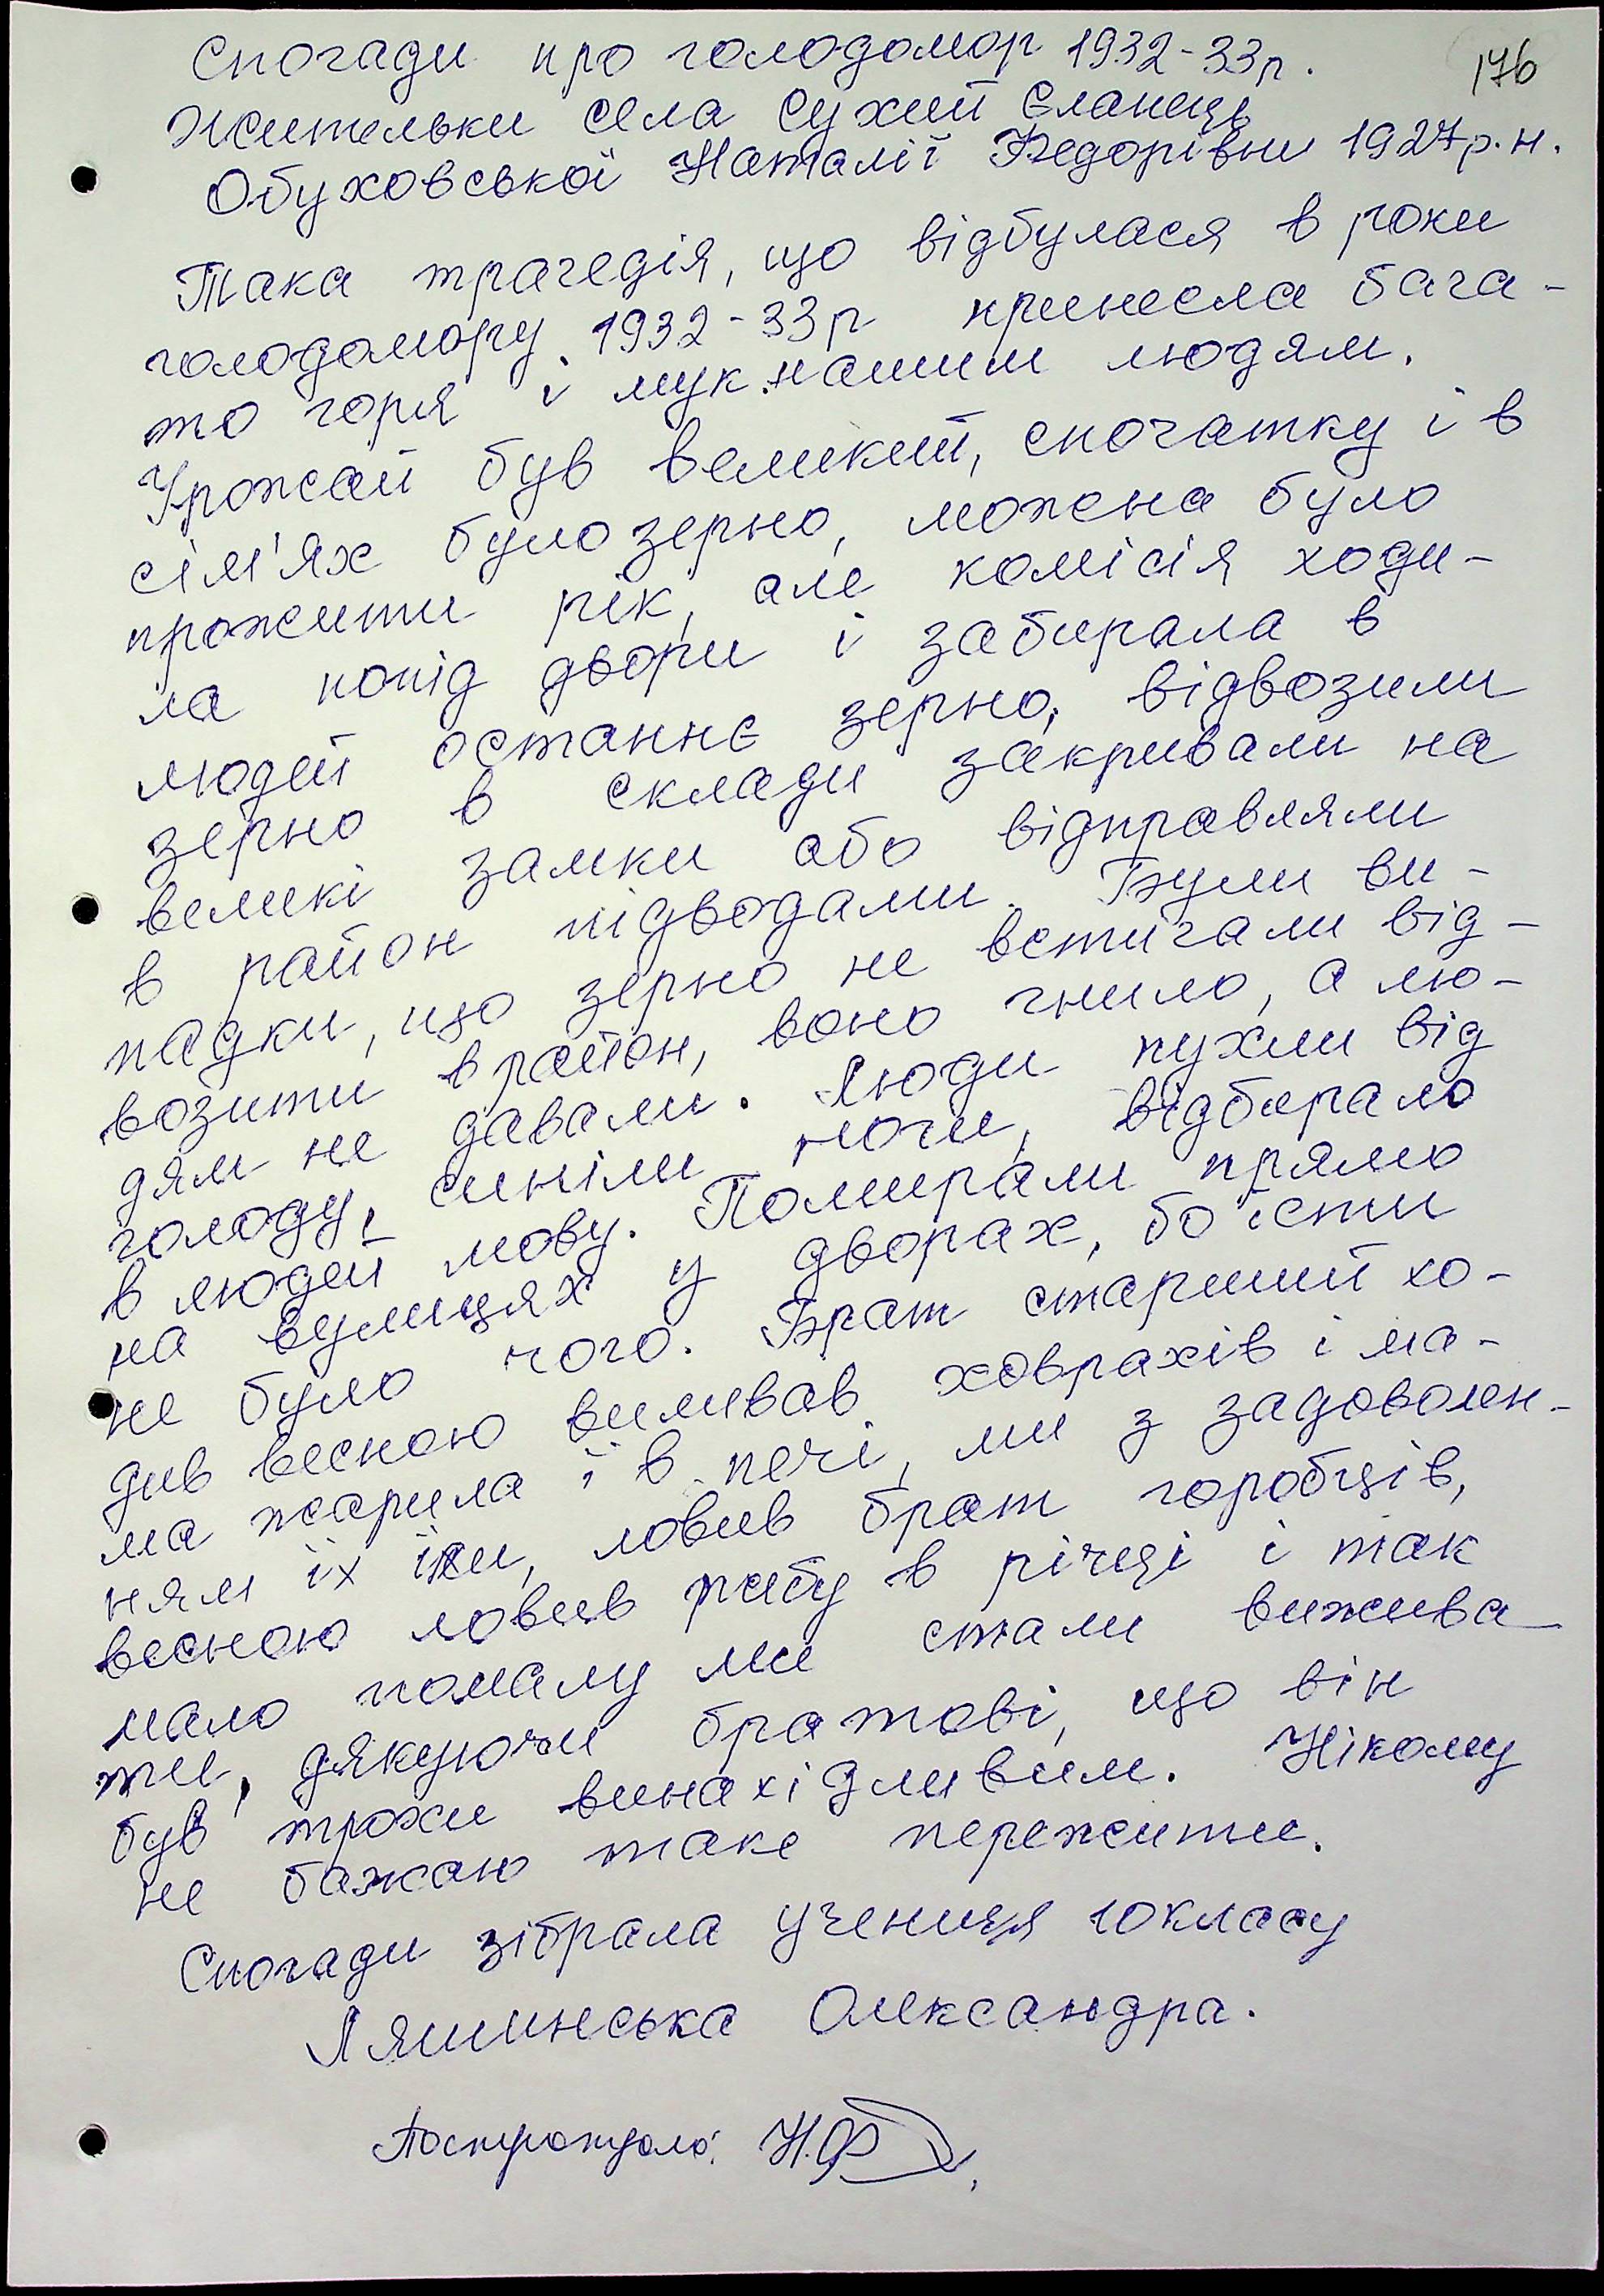 176
Спогади про голодомор 1932-33р.
Жительки села Сухий Єланець
Обуховської Наталії Федорівни 1927р.н.
Така трагедія, що відбулася в роки
голодомору 1932-33р принесла бага-
то горя і мук нашим людям.
Урожай був великий, спочатку і в
сім'ях було зерно, можна було
прожити рік, але комісія ходи-
ла попід двори і забирала в
людей останнє зерно, відвозили
зерно в склади закривали на
великі замки або відправляли
в район підводами. Були ви-
падки, що зерно не встигали від-
возити в район, воно гнило, а лю-
дям не давали. Люди пухли від
голоду, синіли ноги, відбирало
в людей мову. Помирали прямо
на вулицях у дворах, бо їсти
не було чого. Брат старший хо-
див весною виливав ховрахів і ма-
ма жарила їх в печі, ми з задоволен-
ням їх їли, ловив брат горобців,
весною ловив рибу в річці і так
мало помалу ми стали вижива
ти, дякуючи братові, що він
був трохи винахідливим. Нікому
не бажаю таке пережити.
Спогади зібрала учениця 10класу
Ляшинська Олександра.
Н.Ф